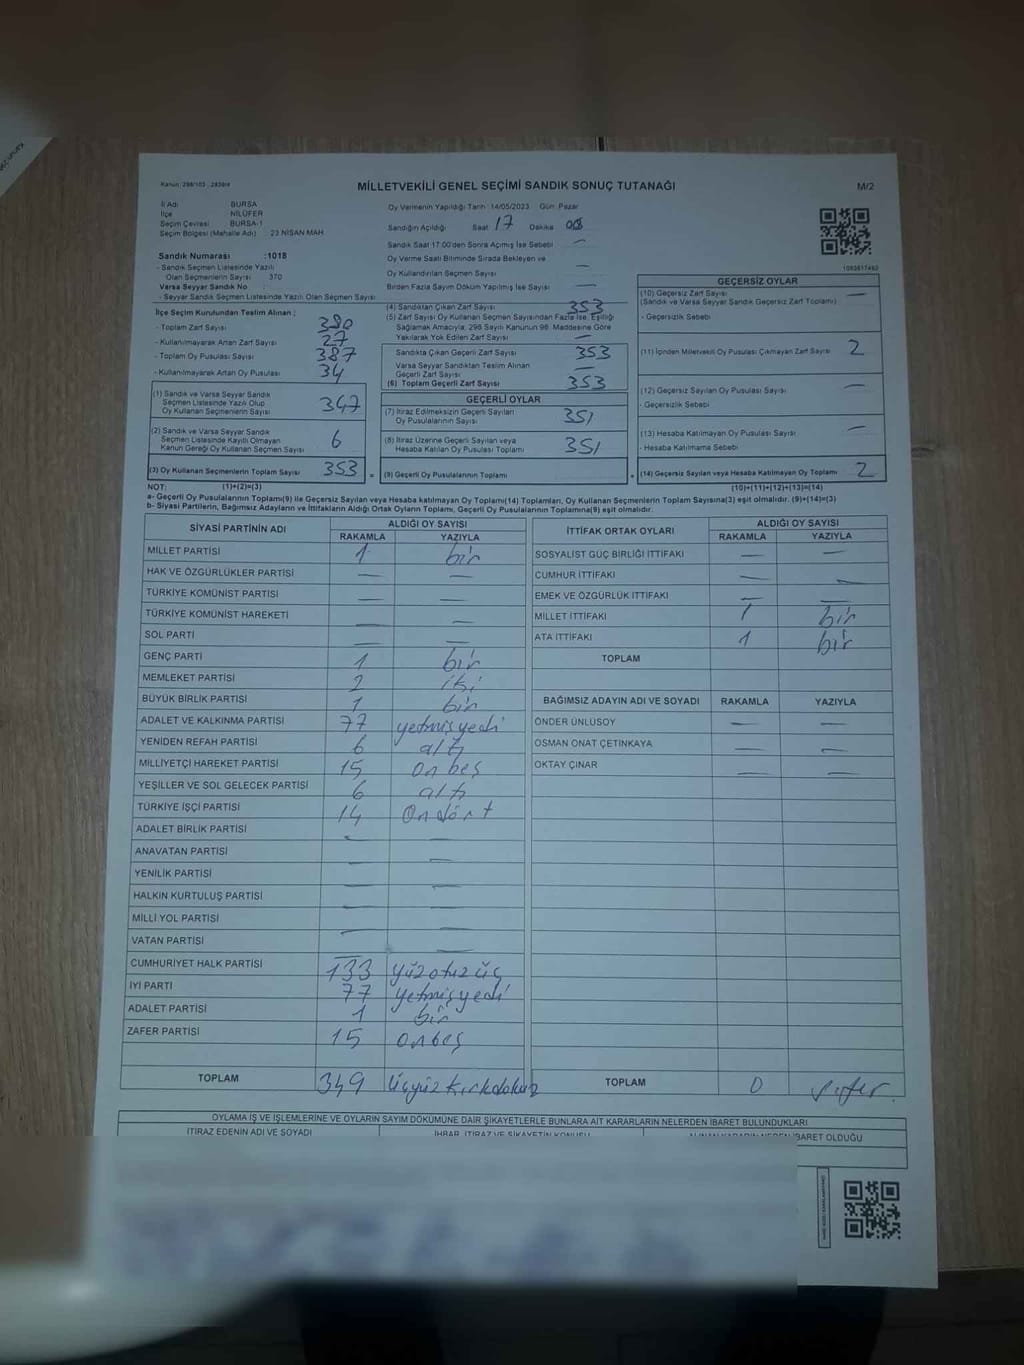 Kanun: 298/103 , 2839/4
MİLLETVEKİLİ GENEL SEÇİMİ SANDIK SONUÇ TUTANAĞI
M/2
İl Adı BURSA
İlçe NİLÜFER
Seçim Çevresi BURSA-1
Seçim Bölgesi (Mahalle Adı) : 23 NİSAN MAH
Sandık Numarası :1018
- Sandık Seçmen Listesinde Yazılı
Olan Seçmenlerin Sayısı 370
Varsa Seyyar Sandık No :
- Seyyar Sandık Seçmen Listesinde Yazılı Olan Seçmen Sayısı
İlçe Seçim Kurulundan Teslim Alınan ;
- Toplam Zarf Sayısı 380
- Kullanılmayarak Artan Zarf Sayısı 27
- Toplam Oy Pusulası Sayısı 387
- Kullanılmayarak Artan Oy Pusulası 34
(1) Sandık ve Varsa Seyyar Sandık
Seçmen Listesinde Yazılı Olup
Oy Kullanan Seçmenlerin Sayısı 347
(2) Sandık ve Varsa Seyyar Sandık
Seçmen Listesinde Kayıtlı Olmayan
Kanun Gereği Oy Kullanan Seçmen Sayısı 6
(3) Oy Kullanan Seçmenlerin Toplam Sayısı 353 =
Oy Vermenin Yapıldığı Tarih : 14/05/2023 Gün: Pazar
Sandığın Açıldığı Saat 17 Dakika
Sandık Saat 17:00'den Sonra Açılmış İse Sebebi —
Oy Verme Saati Bitiminde Sırada Bekleyen ve
Oy Kullandırılan Seçmen Sayısı —
Birden Fazla Sayım Döküm Yapılmış İse Sayısı —
(4) Sandıktan Çıkan Zarf Sayısı 353
(5) Zarf Sayısı Oy Kullanan Seçmen Sayısından Fazla İse, Eşitliği
Sağlamak Amacıyla; 298 Sayılı Kanunun 98. Maddesine Göre
Yakılarak Yok Edilen Zarf Sayısı —
Sandıkta Çıkan Geçerli Zarf Sayısı 353
Varsa Seyyar Sandıktan Teslim Alınan
Geçerli Zarf Sayısı —
(6) Toplam Geçerli Zarf Sayısı 353
GEÇERLİ OYLAR
(7) İtiraz Edilmeksizin Geçerli Sayılan
Oy Pusulalarının Sayısı 351
(8) İtiraz Üzerine Geçerli Sayılan veya
Hesaba Katılan Oy Pusulası Toplamı 351
(9) Geçerli Oy Pusulalarının Toplamı +
1093617493
GEÇERSİZ OYLAR
(10) Geçersiz Zarf Sayısı —
(Sandık ve Varsa Seyyar Sandık Geçersiz Zarf Toplamı)
- Geçersizlik Sebebi
(11) İçinden Milletvekili Oy Pusulası Çıkmayan Zarf Sayısı 2
(12) Geçersiz Sayılan Oy Pusulası Sayısı —
- Geçersizlik Sebebi
(13) Hesaba Katılmayan Oy Pusulası Sayısı —
- Hesaba Katılmama Sebebi
(14) Geçersiz Sayılan veya Hesaba Katılmayan Oy Toplamı 2
NOT: (1)+(2)=(3) (10)+(11)+(12)+(13)=(14)
a- Geçerli Oy Pusulalarının Toplamı(9) ile Geçersiz Sayılan veya Hesaba katılmayan Oy Toplamı(14) Toplamları, Oy Kullanan Seçmenlerin Toplam Sayısına(3) eşit olmalıdır. (9)+(14)=(3)
b- Siyasi Partilerin, Bağımsız Adayların ve İttifakların Aldığı Ortak Oyların Toplamı, Geçerli Oy Pusulalarının Toplamına(9) eşit olmalıdır.
SİYASİ PARTİNİN ADI ALDIĞI OY SAYISI
RAKAMLA YAZIYLA
MİLLET PARTİSİ 1 bir
HAK VE ÖZGÜRLÜKLER PARTİSİ — —
TÜRKİYE KOMÜNİST PARTİSİ — —
TÜRKİYE KOMÜNİST HAREKETİ — —
SOL PARTİ — —
GENÇ PARTİ 1 bir
MEMLEKET PARTİSİ 2 iki
BÜYÜK BİRLİK PARTİSİ 1 bir
ADALET VE KALKINMA PARTİSİ 77 yetmişyedi
YENİDEN REFAH PARTİSİ 6 altı
MİLLİYETÇİ HAREKET PARTİSİ 15 onbeş
YEŞİLLER VE SOL GELECEK PARTİSİ 6 altı
TÜRKİYE İŞÇİ PARTİSİ 14 Ondört
ADALET BİRLİK PARTİSİ — —
ANAVATAN PARTİSİ — —
YENİLİK PARTİSİ
HALKIN KURTULUŞ PARTİSİ — —
MİLLİ YOL PARTİSİ — —
VATAN PARTİSİ — —
CUMHURİYET HALK PARTİSİ 133 yüzotuzüç
İYİ PARTİ 77 yetmişyedi
ADALET PARTİSİ 1 bir
ZAFER PARTİSİ 15 onbeş
TOPLAM 349 üçyüzkırkdokuz
İTTİFAK ORTAK OYLARI ALDIĞI OY SAYISI
RAKAMLA YAZIYLA
SOSYALİST GÜÇ BİRLİĞİ İTTİFAKI — —
CUMHUR İTTİFAKI — —
EMEK VE ÖZGÜRLÜK İTTİFAKI — —
MİLLET İTTİFAKI 1 bir
ATA İTTİFAKI 1 bir
TOPLAM
BAĞIMSIZ ADAYIN ADI VE SOYADI RAKAMLA YAZIYLA
ÖNDER ÜNLÜSOY — —
OSMAN ONAT ÇETİNKAYA — —
OKTAY ÇINAR — —
TOPLAM 0 sıfır
OYLAMA İŞ VE İŞLEMLERİNE VE OYLARIN SAYIM DÖKÜMÜNE DAİR ŞİKAYETLERLE BUNLARA AİT KARARLARIN NELERDEN İBARET BULUNDUKLARI
İTİRAZ EDENİN ADI VE SOYADI İHBAR, İTİRAZ VE ŞİKAYETİN KONUSU ALINAN KARARIN NEDEN İBARET OLDUĞU